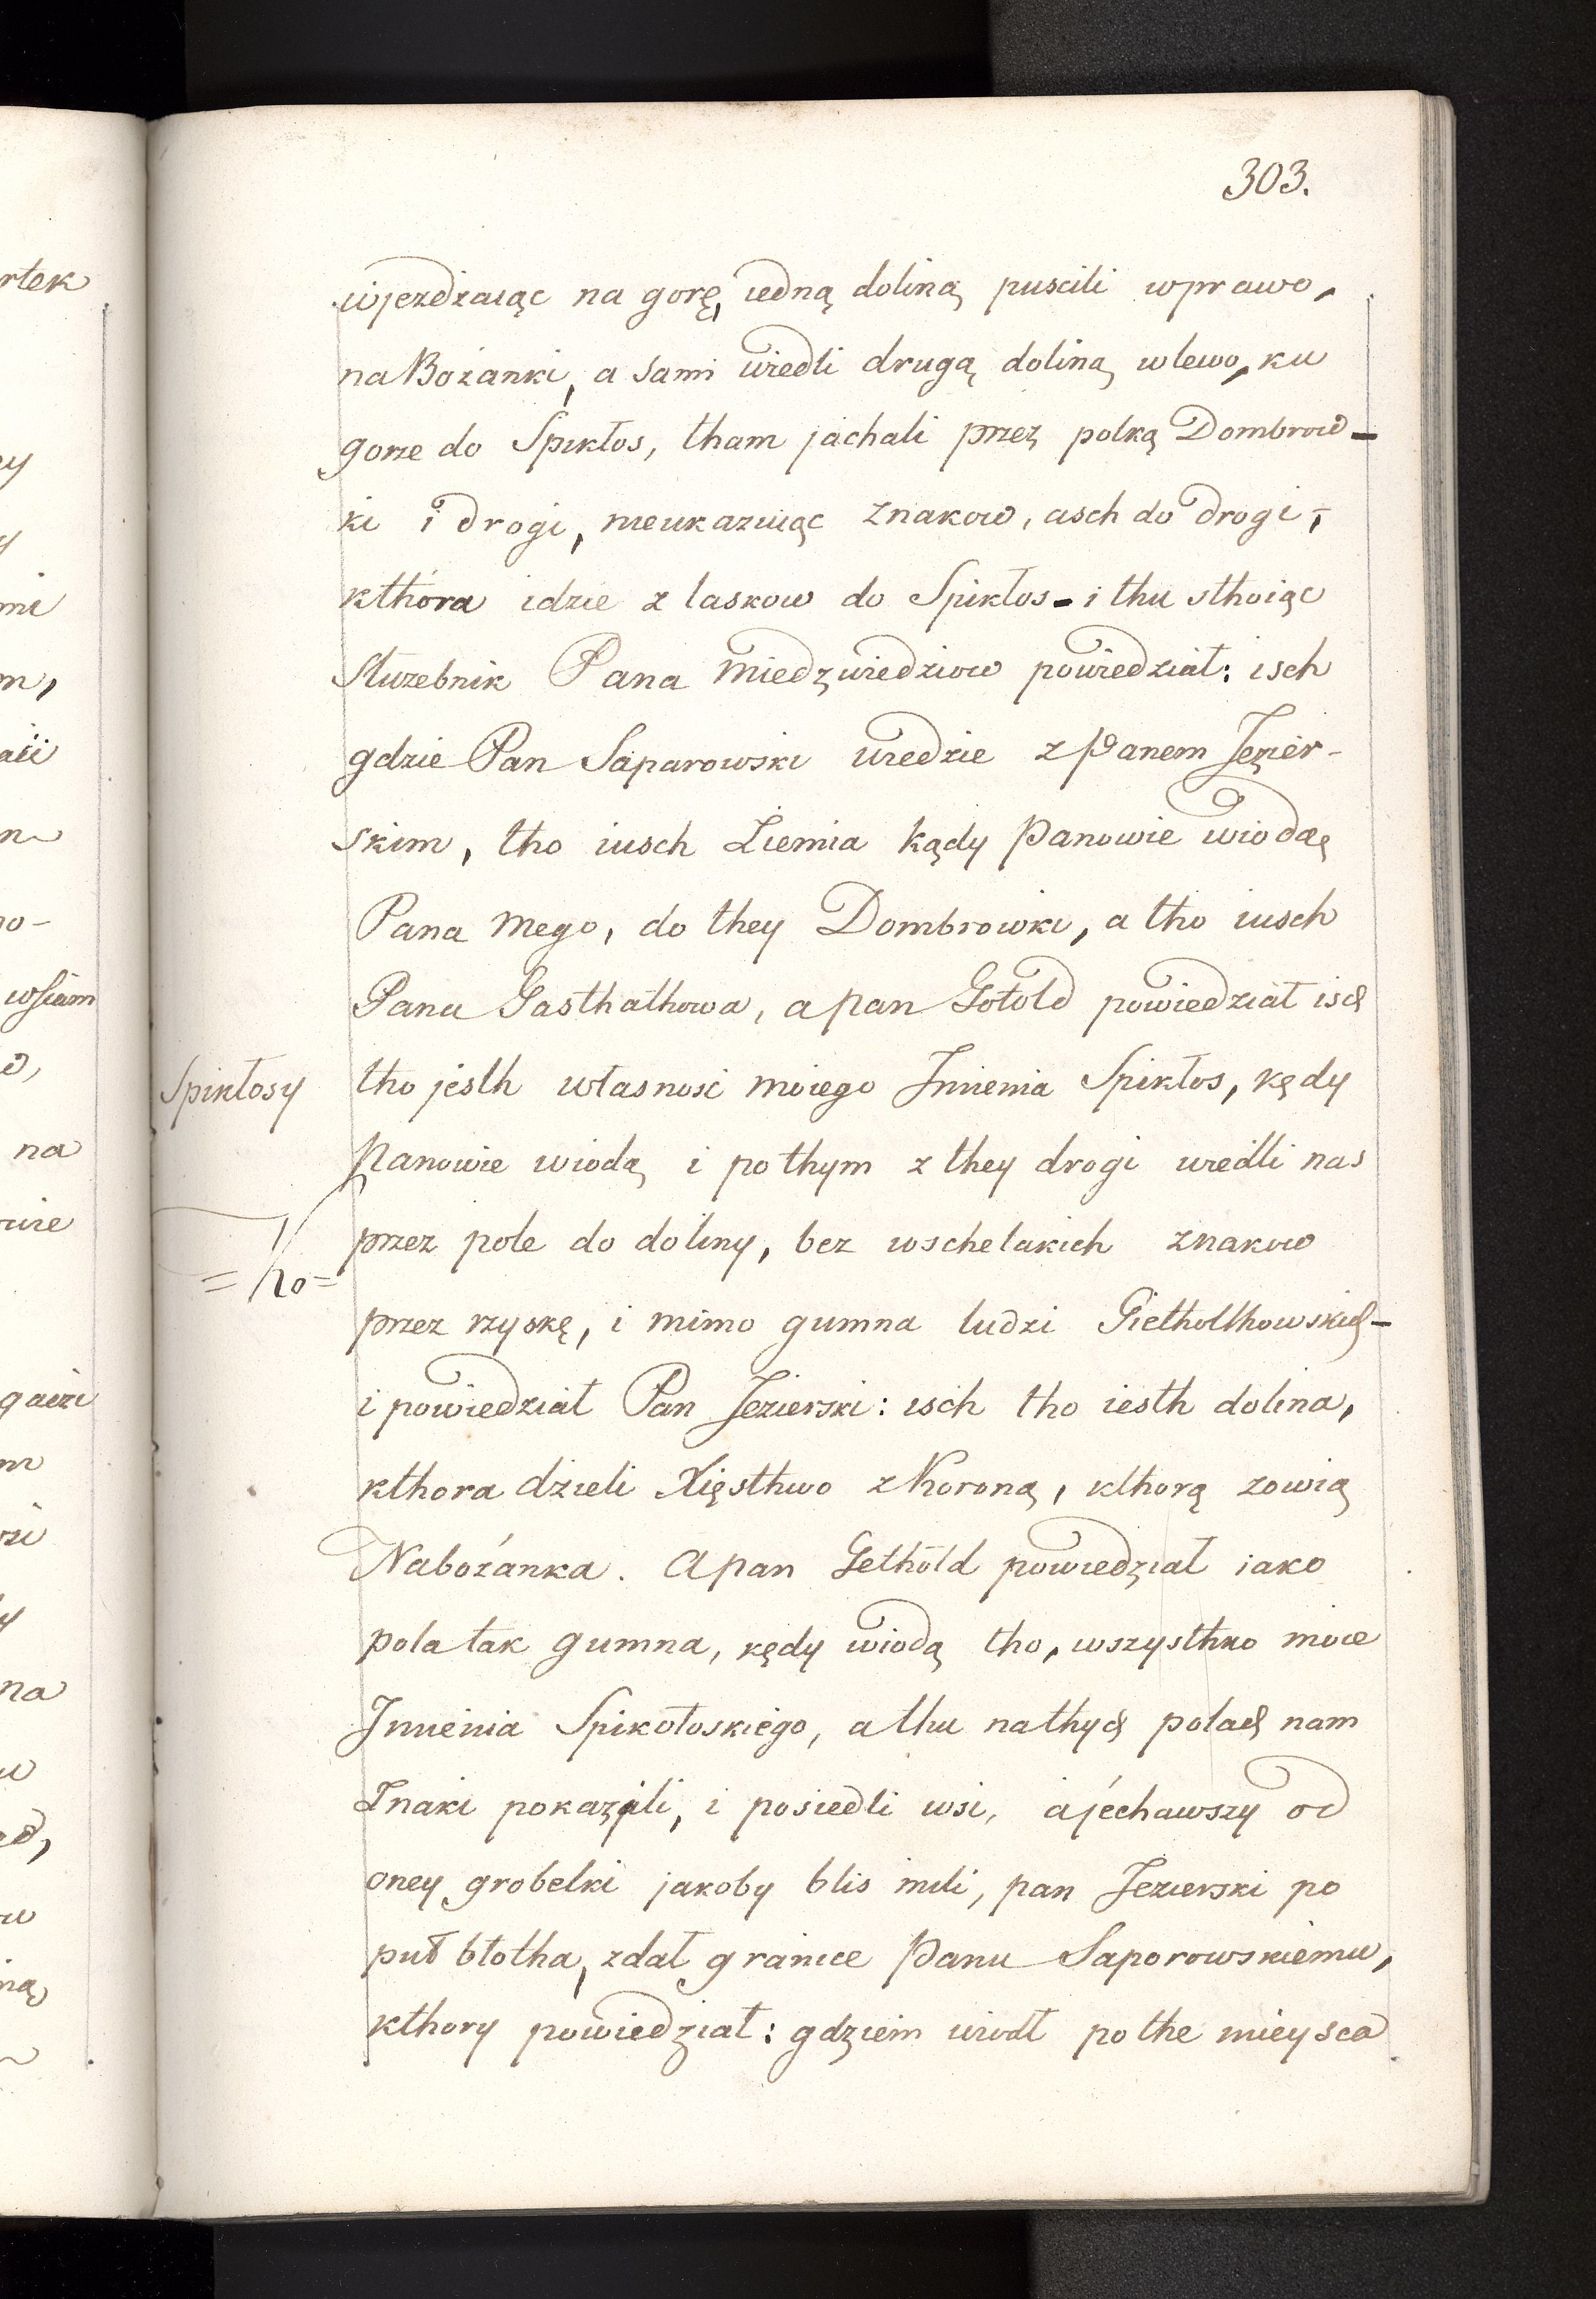 303.
wjezdżaiąc na gorę, iedną doliną puscili wprawo,
na Bożanki, a sami wiedli drugą doliną wlewo, ku
gorze do Spikłos, tham jachali przez polką Dombrow-
ki i drogi, nieukazuiąc znakow, asch do drogi,
kthóra idzie z laskow do Spikłos - i thu sthoiąc
Służebnik Pana Miedzwiedziow powiedział: isch
gdzie Pan Saparowski wiedzie z Panem Jezier-
skim, tho iusch Ziemia kądy Panowie wiodą
Pana mego, do they Dombrowki, a tho iusch
Pana Gasthathowa, a pan Gotold powiedział isch
Spikłosy
tho jesth własnosć moiego Jmienia Spikłos, kędy
Panowie wiodą i po thym z they drogi wiedli nas
przez pole do doliny, bez wschelakich znakow
przez rzyskę, i mimo gumna ludzi Gietholthowskich -
i powiedział Pan Jezierski: isch tho iesth dolina,
kthora dzieli Xięsthwo z Koroną, kthorą zowią
Nabożanka. A pan Gethold powiedział iako
pola tak gumna, kędy wiodą tho, wszysthko moie
Jmienia Spikołoskiego, a thu na thych polach nam
Znaki pokazali, i posiedli wsi, a jéchawszy od
oney grobelki jakoby blis mili, pan Jezierski po
puł błotha, zdał granice Panu Saporowskiemu,
kthory powiedział: gdziem wiodł po the mieysca